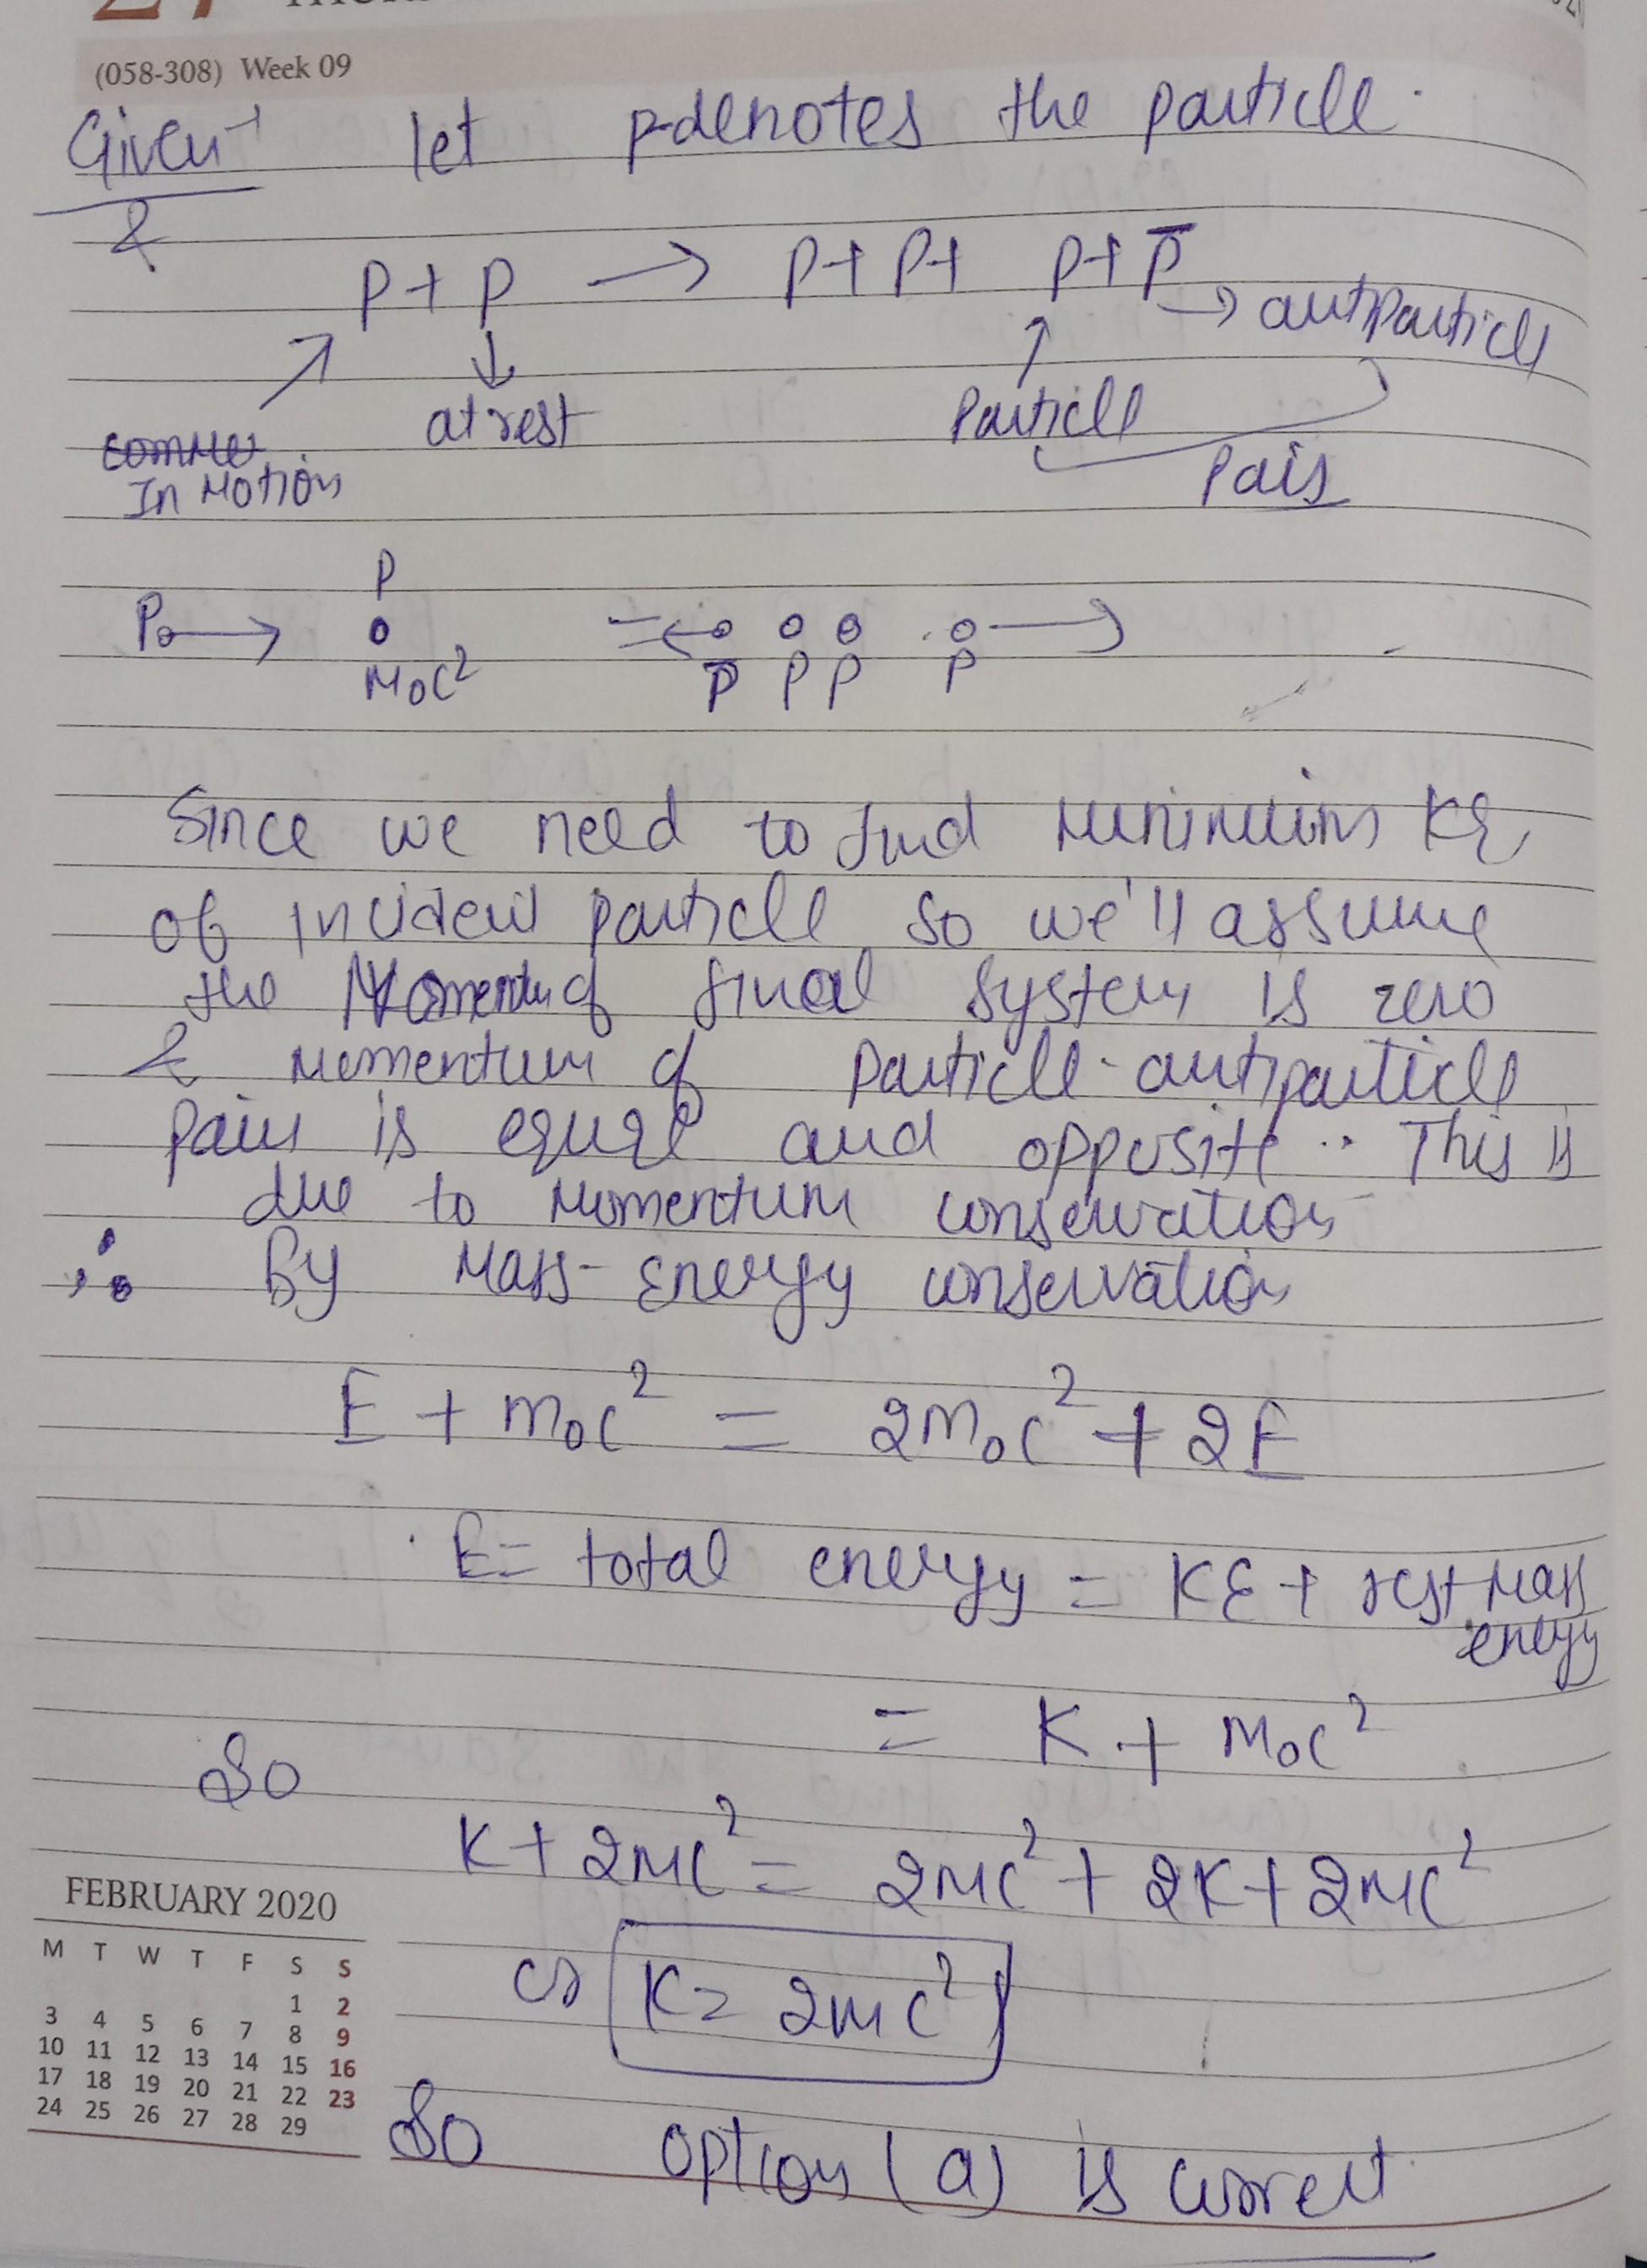 (058-308) Week 09
Given let p-denotes the particle.
&
P + P → P + P + P + P̅
→ antiparticle
at rest Particle
In Motion Pair
P
P → = ←
M₀C² P̅ P P P
Since we need to find minimum KE
of incident particle so we'll assume
the Momentum of final system is zero
& momentum of particle-antiparticle
pair is equal and opposite. This is
due to momentum conservation
∴ By Mass-Energy conservation
E + m₀c² = 2m₀c² + 2E
E = total energy = KE + rest Mass
energy
= K + M₀C²
So
K + 2MC² = 2MC² + 2K + 2MC²
K = 2MC²
So option (a) is correct
FEBRUARY 2020
M T W T F S S
1 2
3 4 5 6 7 8 9
10 11 12 13 14 15 16
17 18 19 20 21 22 23
24 25 26 27 28 29